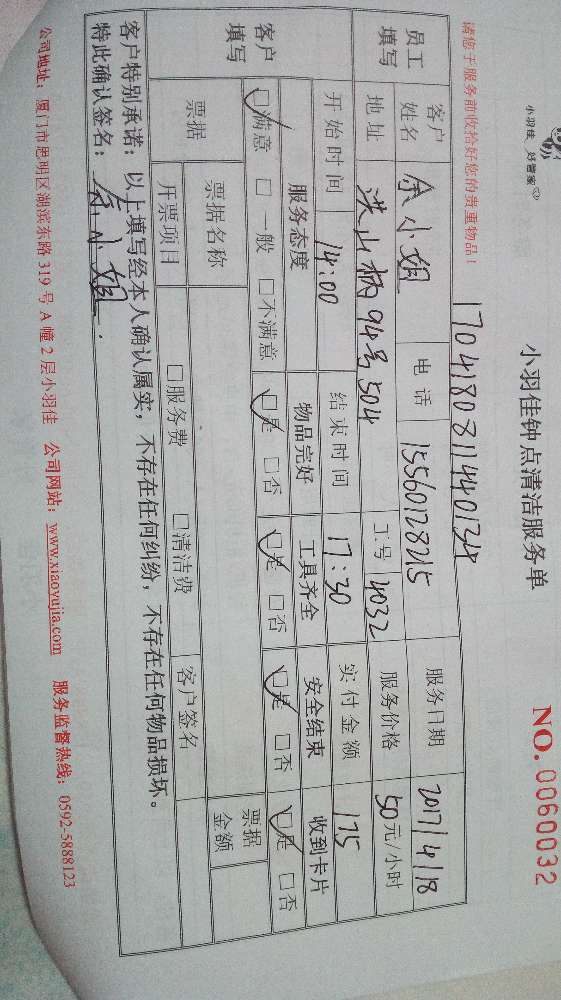 小羽佳 好管家
小羽佳钟点清洁服务单
NO. 0060032
请您于服务前收拾好您的贵重物品！
1704180811440134
员工填写 客户姓名 余小姐 电话 15560128215 服务日期 2017/4/18
地址 洪山柄94号504 工号 4032 服务价格 50元/小时
客户填写 开始时间 14:00 结束时间 17:30 实付金额 175
服务态度 物品完好 工具齐全 安全结束 收到卡片
☑满意 □一般 □不满意 ☑是 □否 ☑是 □否 ☑是 □否 ☑是 □否
票据 票据名称 票据金额
开票项目 □服务费 □清洁费 客户签名
客户特别承诺：以上填写经本人确认属实，不存在任何纠纷，不存在任何物品损坏。
特此确认签名：余小姐.
公司地址：厦门市思明区湖滨东路319号A幢2层小羽佳 公司网站：www.xiaoyujia.com 服务监督热线：0592-5888123